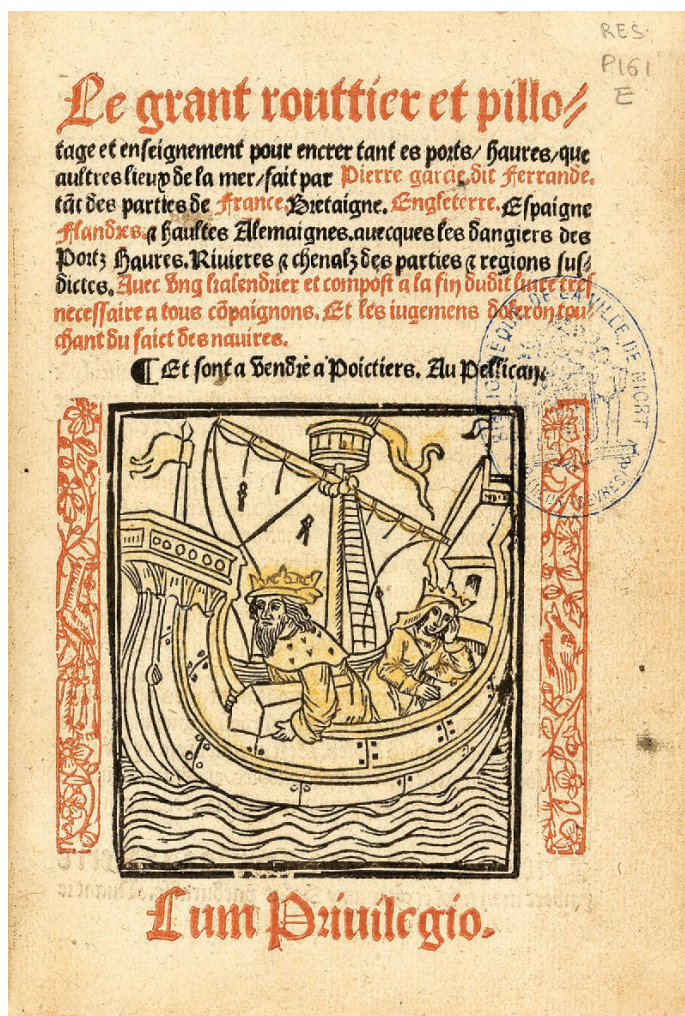 RES.
P161
E
Le grant routtier et pillo/
tage et enseignement pour encrer tant es ports/ haures/que
aultres lieux de la mer/fait par Pierre garcie dit Ferrande.
tãt des parties de France, Bretaigne. Engleterre. Espaigne
Flandres. ⁊ haultes Alemaignes. auecques les dangiers des
Portz Haures. Riuieres ⁊ chenalz des parties ⁊ regions sus/
dictes. Auec vng kalendrier et compost a la fin dudit liure tres
necessaire a tous cõpaignons. Et les iugemens doleron tou/
chant du faict des nauires.
¶ Et sont a vendre a Poictiers. Au Pellican.
BIBLIOTHEQUE DE LA VILLE DE NIORT
(DEUX-SEVRES)
Cum Priuilegio.